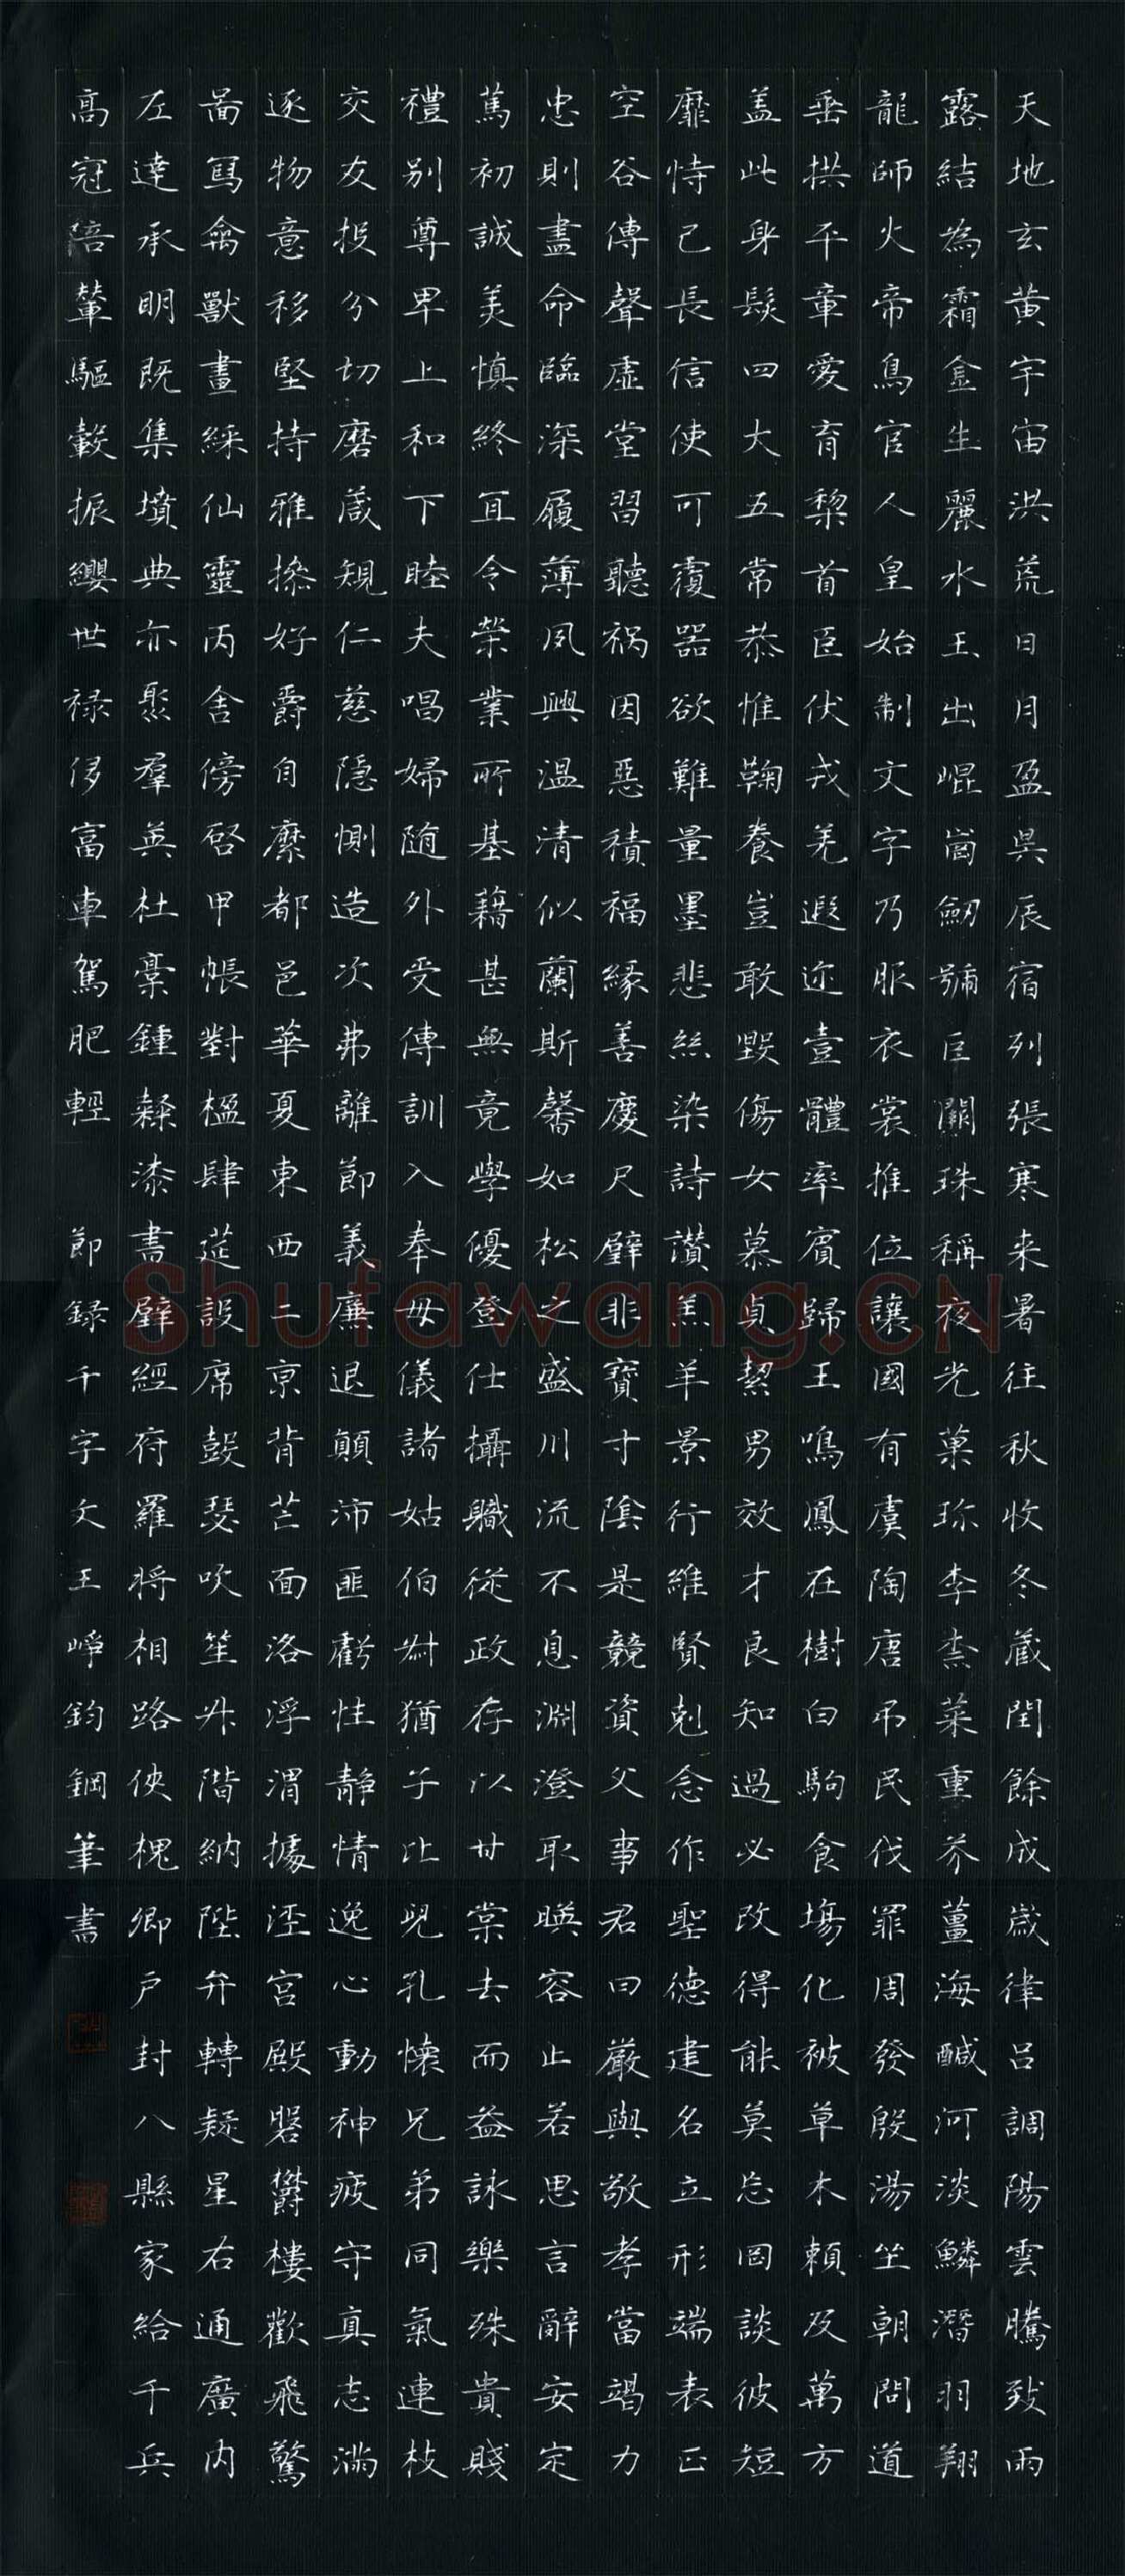 天地玄黃宇宙洪荒日月盈昃辰宿列張寒来暑往秋收冬蔵閏餘成嵗律呂調陽雲騰致雨
露結為霜金生麗水玉出崐崗劒號巨闕珠稱夜光菓珎李柰菜重芥薑海醎河淡鱗潛羽翔
龍師火帝鳥官人皇始制文字乃服衣裳推位讓國有虞陶唐吊民伐罪周發殷湯坐朝問道
垂拱平章愛育黎首臣伏戎羌遐迩壹體率賓歸王鳴鳳在樹白駒食場化被草木賴及萬方
盖此身髮四大五常恭惟鞠養豈敢毀傷女慕貞絜男效才良知過必改得能莫忘罔談彼短
靡恃己長信使可覆器欲難量墨悲絲染詩讃羔羊景行維賢剋念作聖德建名立形端表正
空谷傳聲虛堂習聽祸因惡積福緣善慶尺璧非寶寸陰是競資父事君曰嚴與敬孝當竭力
忠則盡命臨深履薄夙興温清似蘭斯馨如松之盛川流不息淵澄取暎容止若思言辭安定
篤初誠美慎終宜令榮業所基藉甚無竟學優登仕攝職従政存以甘棠去而益詠樂殊貴賤
禮别尊卑上和下睦夫唱婦随外受傳訓入奉母儀諸姑伯叔猶子比兒孔懐兄弟同氣連枝
交友投分切磨箴規仁慈隱惻造次弗離節義廉退顛沛匪虧性静情逸心動神疲守真志滿
逐物意移堅持雅操好爵自縻都邑華夏東西二京背芒面洛浮渭據泾宮殿磐欝樓歡飛驚
畵寫禽獸畫綵仙靈丙舍傍啓甲帳對楹肆莚設席鼓瑟吹笙升階納陛弁轉疑星右通廣内
左達承明既集墳典亦聚羣英杜稾鍾隸漆書壁經府羅將相路俠槐卿戸封八縣家給千兵
高冠陪輦驅轂振纓世禄侈富車駕肥輕 節録千字文王崢鈞鋼筆書
Shufawang.CN